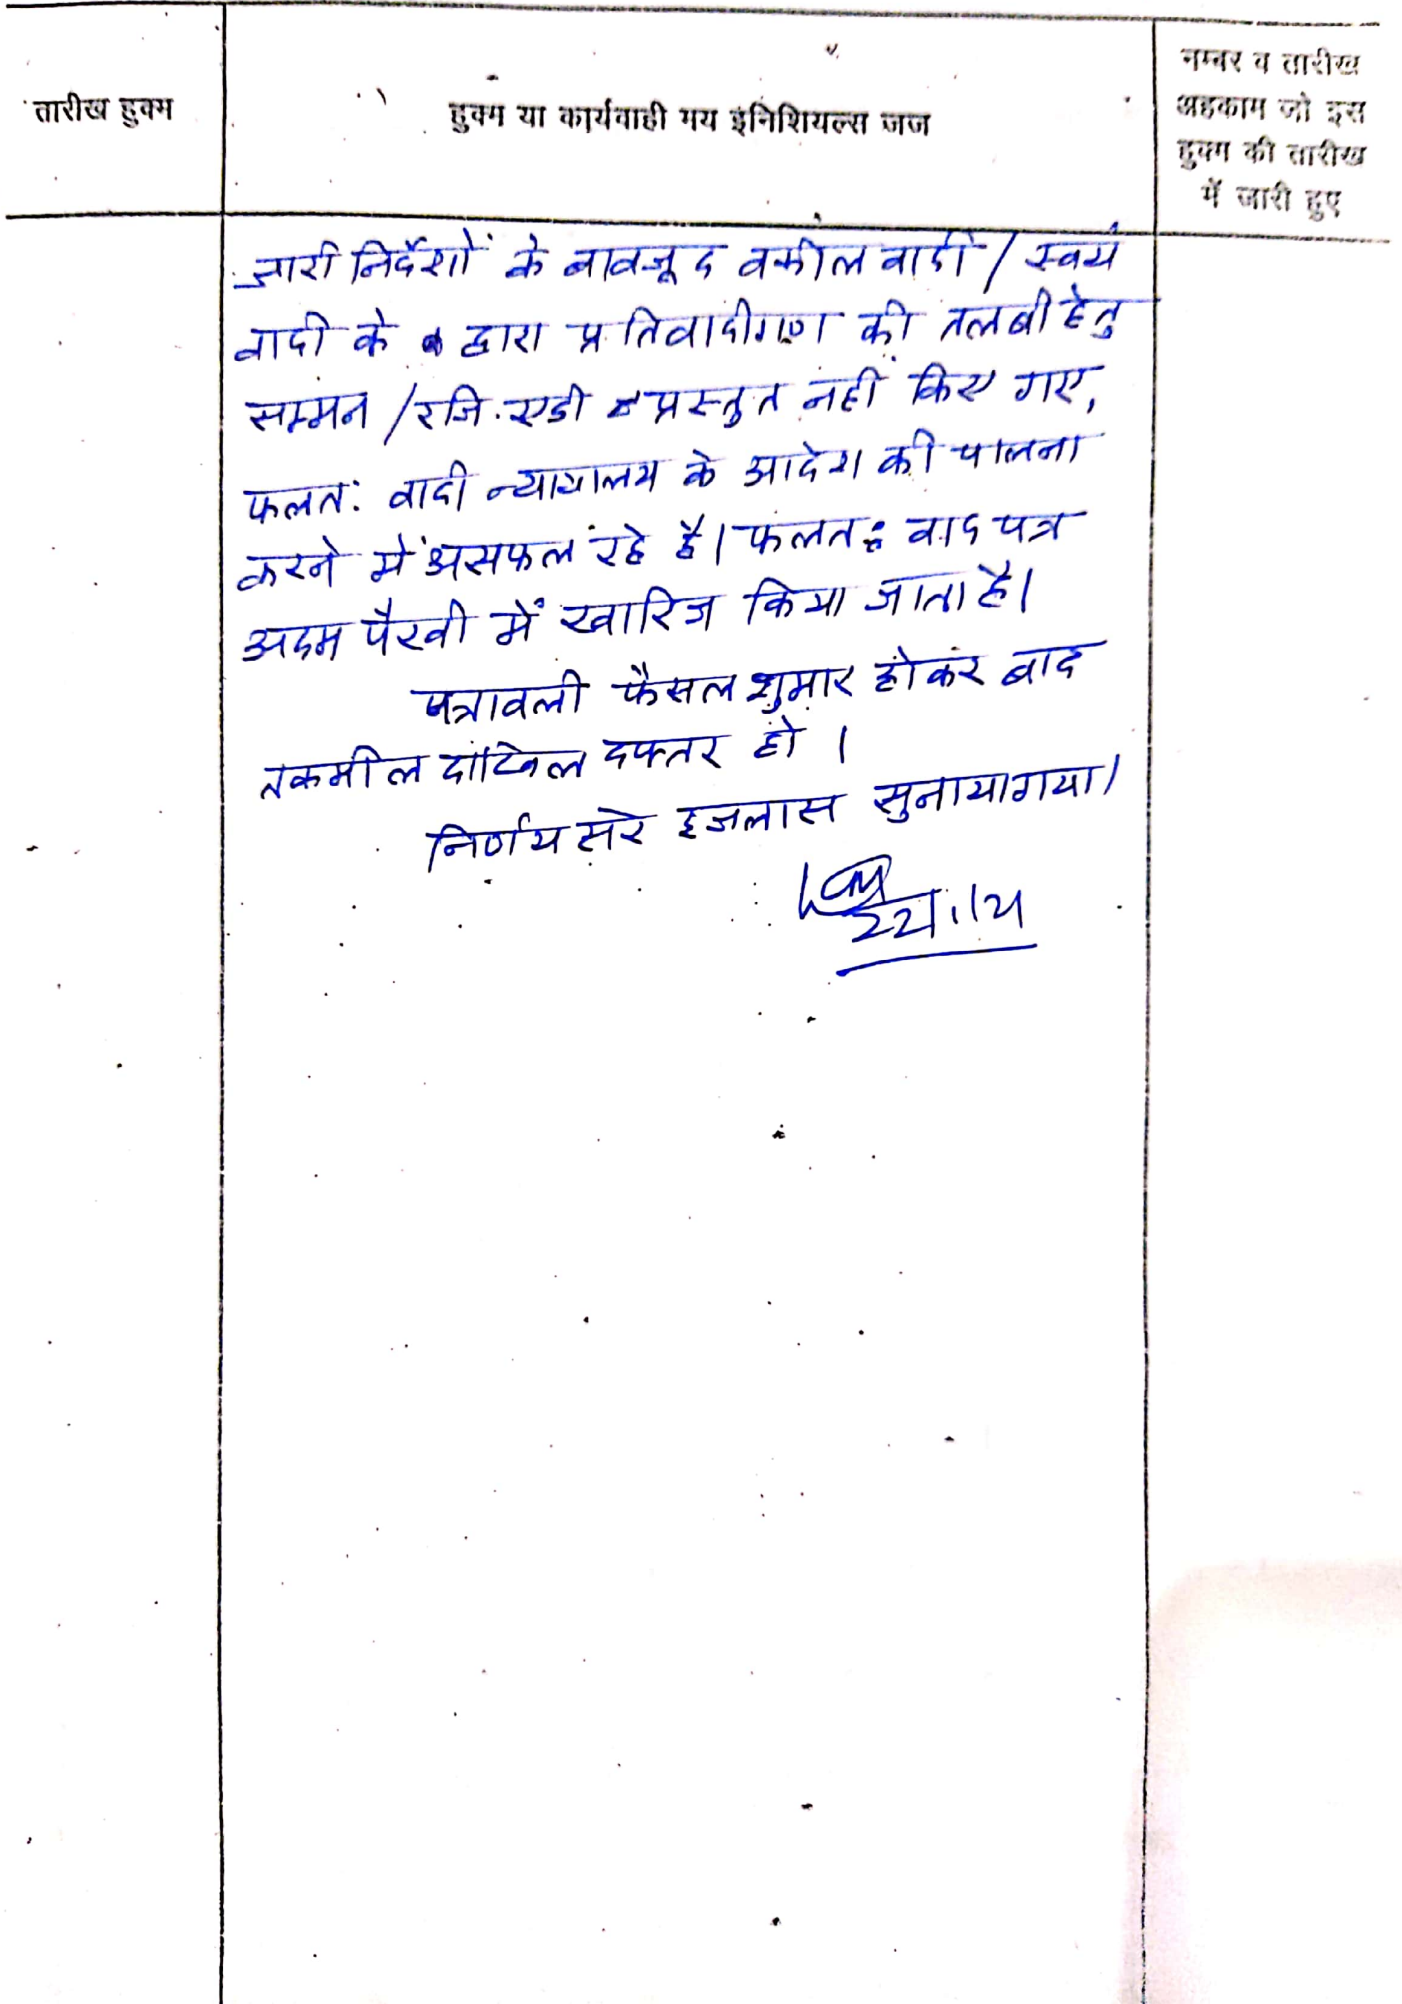 तारीख हुक्म
हुक्म या कार्यवाही मय इंनिशियल्स जज
नम्बर व तारीख
अहकाम जो इस
हुक्म की तारीख
में जारी हुए
जारी निर्देशों के बावजूद वकील वादी / स्वयं
वादी के द्वारा प्रतिवादीगण की तलबी हेतु
सम्मन / रजि. एडी प्रस्तुत नहीं किए गए,
फलत: वादी न्यायालय के आदेश की पालना
करने में असफल रहे है। फलत: वाद पत्र
अदम पैरवी में खारिज किया जाता है।
पत्रावली फैसल शुमार होकर बाद
तकमील दाखिल दफ्तर हो ।
निर्णय सरे इजलास सुनाया गया।